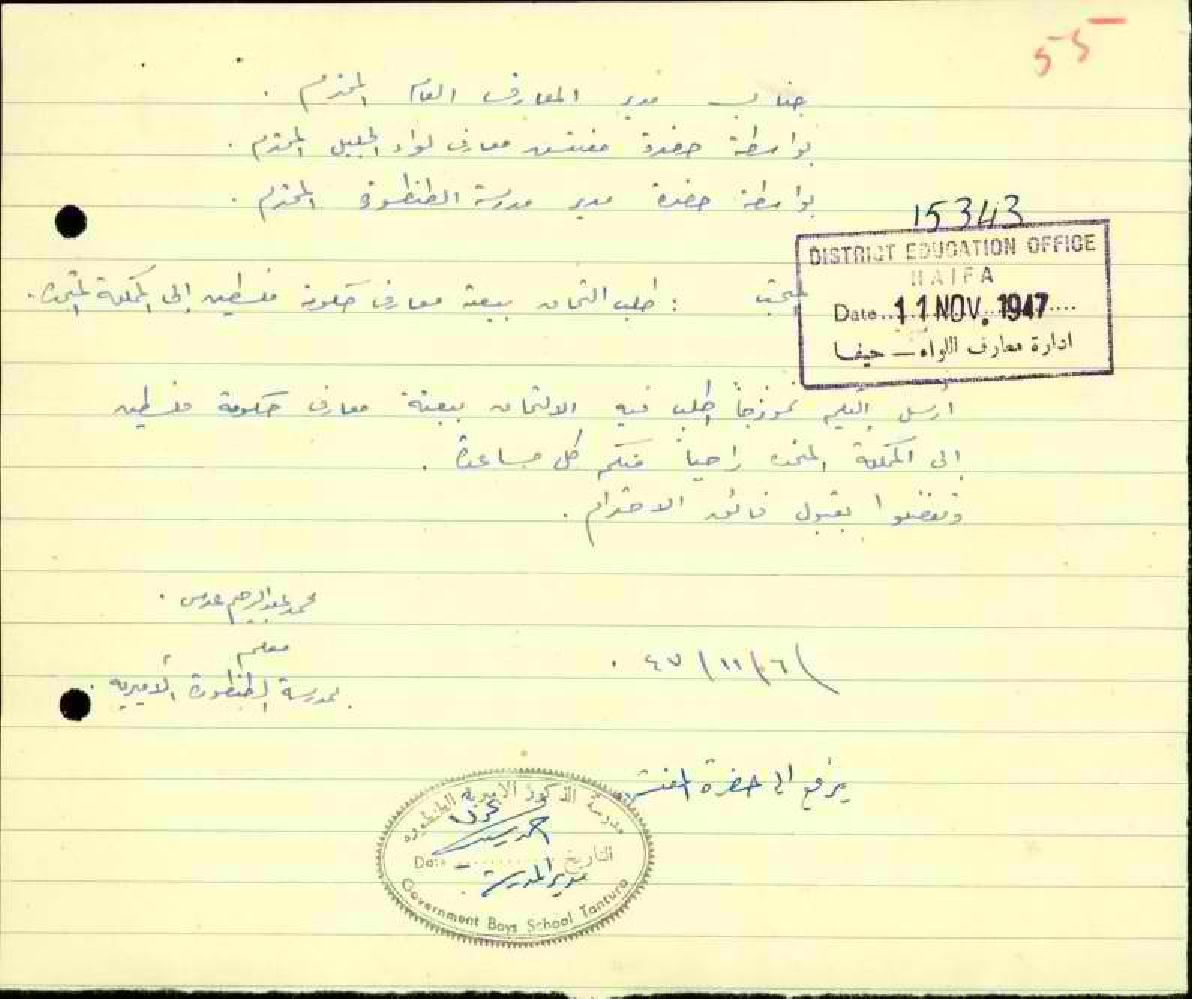 55
جناب مدير المعارف العام المحترم .
بواسطة حضرة مفتش معارف لواء الجليل المحترم .
بواسطة حضرة مدير مدرسة الطنطورة المحترم .
15343
DISTRICT EDUCATION OFFICE
HAIFA
Date..11 NOV. 1947....
ادارة معارف اللواء — حيفا
: طلب التحاق ببعثة معارف حكومة فلسطين إلى المملكة المتحدة .
ارسل اليكم نموذجاً اطلب فيه الالتحاق ببعثة معارف حكومة فلسطين
الى المملكة المتحدة راجياً منكم كل مساعدة .
وتفضلوا بقبول فائق الاحترام .
محمد عبد الرحيم عدس .
معلم
بمدرسة الطنطورة الاميرية .
٤٧/١١/٦ .
يرفع الى حضرة المفتش
مدرسة الذكور الاميرية الطنطوره
التاريخ .......... Date
مدير المدرسة
Government Boys School Tantura